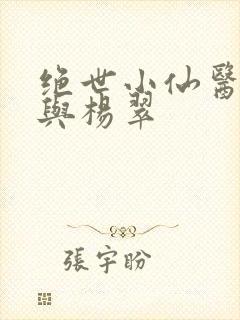 绝世小仙醫
與楊翠
張宇盼